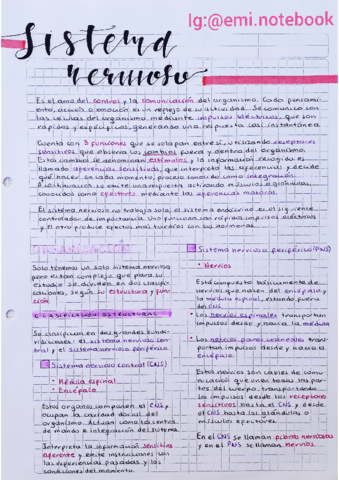 Ig:@emi.notebook
Sistema
nervioso
Es el amo del control y la comunicación del organismo. Cada pensami-
ento, acción o emoción es un reflejo de su actividad. Se comunica con
las células del organismo mediante impulsos eléctricos, que son
rápidos y específicos, generando una respuesta casi instantánea
Cuenta con 3 funciones que se solapan entre sí, utilizando receptores
sensitivos que observa los cambios fuera y dentro del organismo.
Estos cambios se denominan estímulos y la información recogida es
llamada aferencias sensitivas, que interpreta las aferencias y decide
que hacer en cada momento, proceso conocido como integración.
A continuación se emite una respuesta activando músculos o glándulas,
conocidos como efectores mediante las aferencias motoras.
El sistema nervioso no trabaja solo, el sistema endocrino es el siguiente
controlador de importancia. Uno funciona con rápidos impulsos eléctricos
y el otro produce efectos más tardíos con sus hormonas.
Solo tenemos un solo sistema nervioso
pero es tan complejo que para su
estudio se dividen en dos clasifi-
caciones, según su estructura y fun-
ción.
CLASIFICACIÓN ESTRUCTURAL
Se clasifican en dos grandes subdi-
visiones: el sistema nervioso cen-
tral y el sistema nervioso periférico.
Sistema nervioso central (CNS)
• Médula espinal
• Encéfalo
Estos órganos componen el CNS y
ocupan la cavidad dorsal del
organismo. Actúan como los centros
de mando e integración del sistema.
Interpreta la información sensitiva
aferente y emite instrucciones con
las experiencias pasadas y las
condiciones del momento.
Sistema nervioso periférico (PNS)
• Nervios
Está compuesto básicamente de
nervios que nacen del encéfalo y
la médula espinal, estando fuera
del CNS.
• Los nervios espinales transportan
impulsos desde y hacia la médula
• Los nervios craneales tran-
portan impulsos desde y hacia el
encéfalo.
Estos nervios son cables de comu-
nicación que unen todas las par-
tes del cuerpo, transportando
los impulsos desde los receptores
sensitivos hasta el CNS y desde
el CNS hasta las glándulas o
músculos efectores.
En el CNS se llaman fibras nerviosas
y en el PNS se llaman nervios.